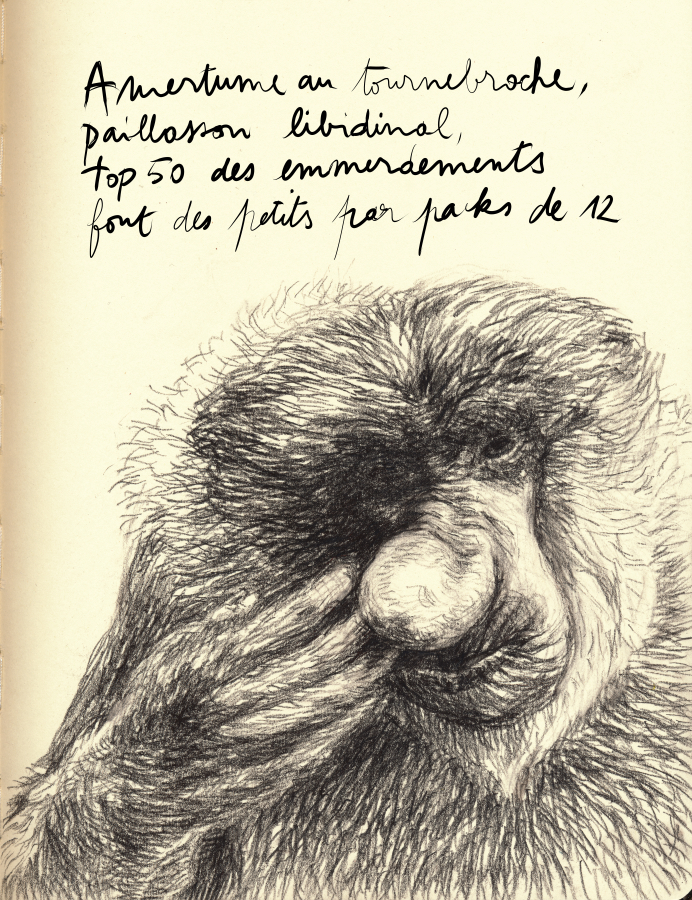 Amertume au tournebroche,
paillasson libidinal,
top 50 des emmerdements
font des petits par packs de 12